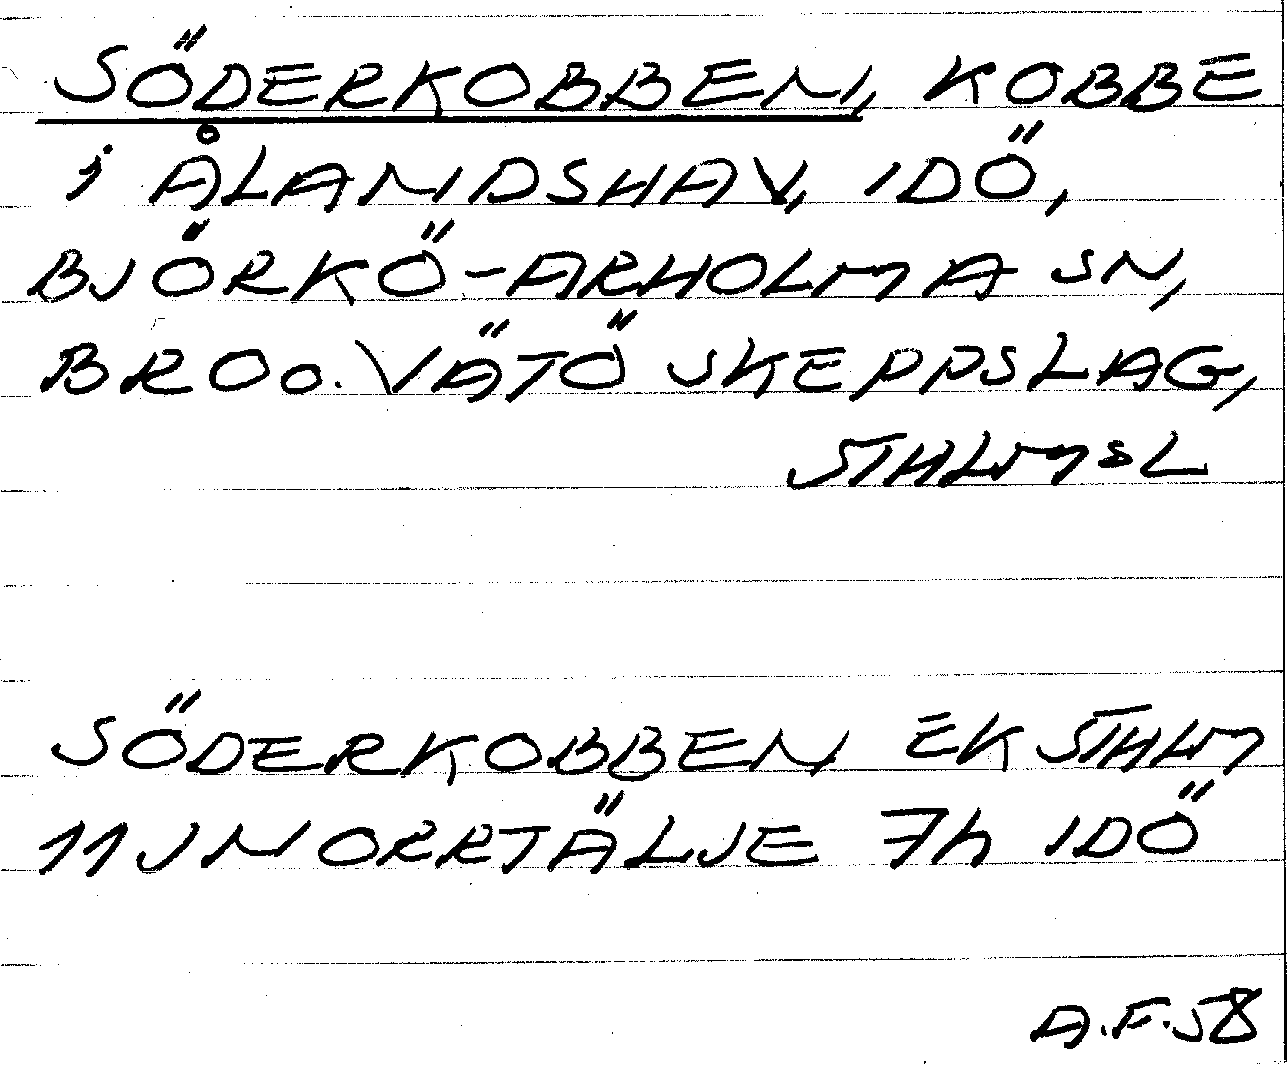 SÖDERKOBBEN, KOBBE
i ÅLANDSHAV, IDÖ,
BJÖRKÖ-ARHOLMA SN,
BRO o. VÄTÖ SKEPPSLAG,
STHLMSL
SÖDERKOBBEN EK STHLM
11J NORRTÄLJE 7h IDÖ
A.F.58